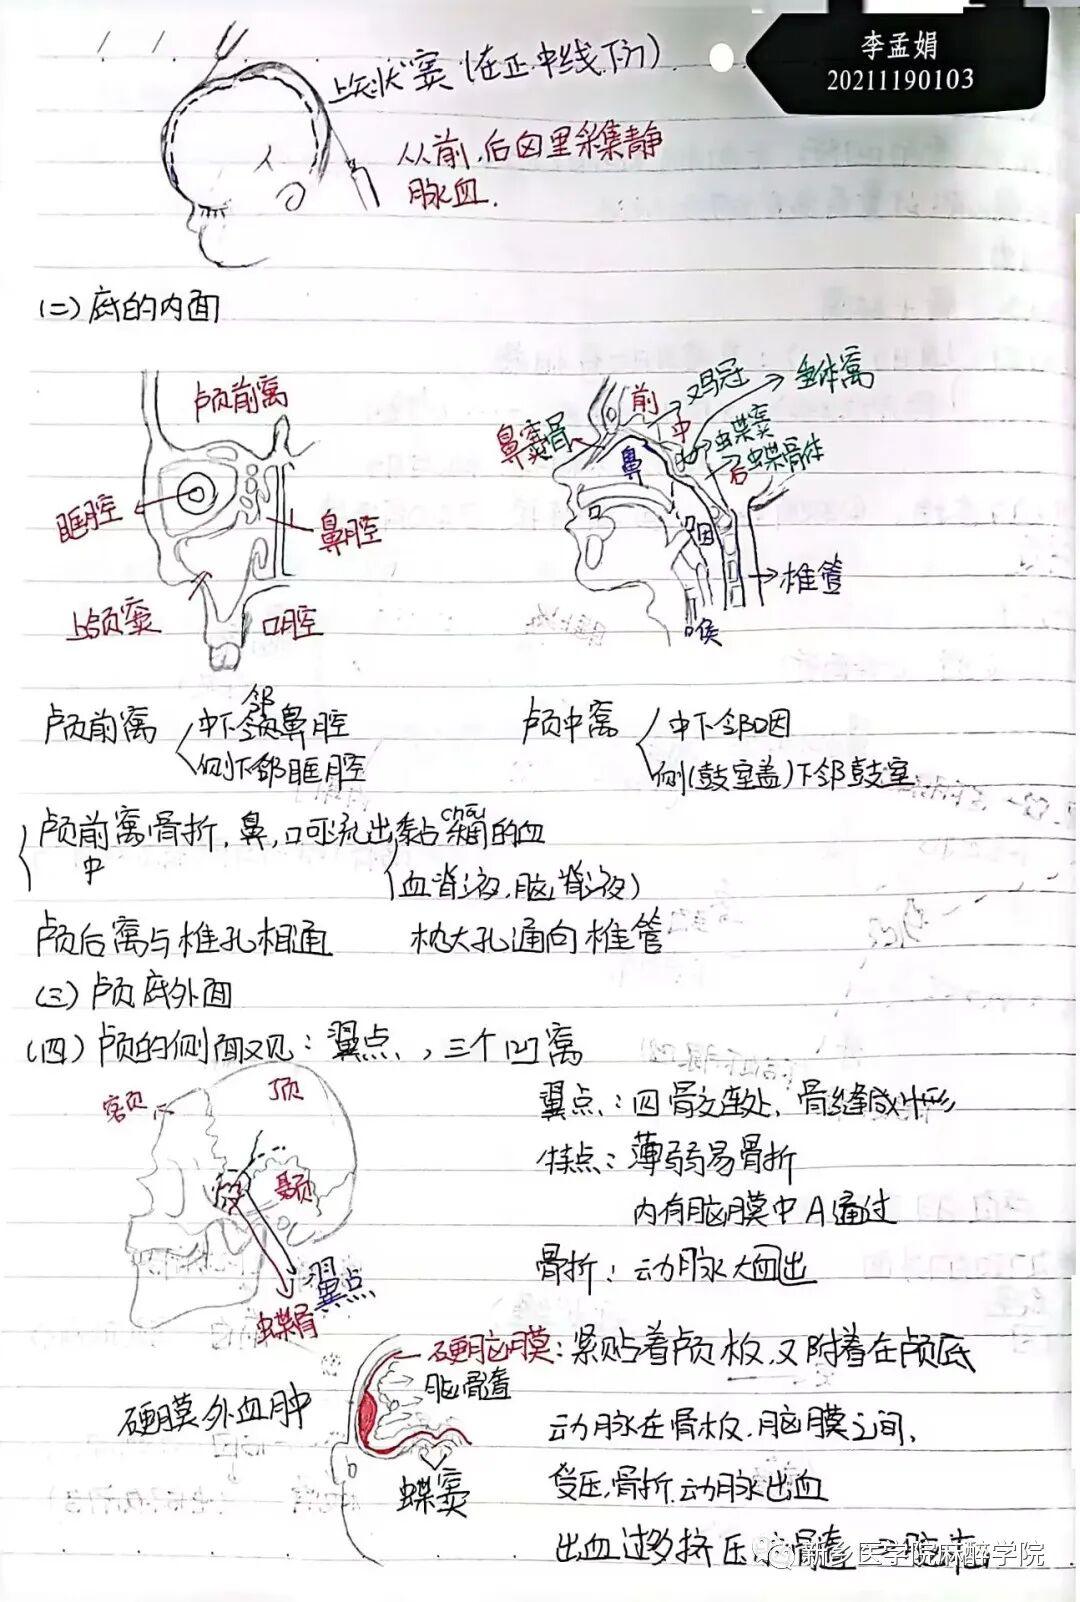 李孟娟
20211190103
上矢状窦(在正中线下方)
从前,后囟里采集静
脉血.
(二)底的内面
颅前窝
眶腔
鼻腔
上颌窦
口腔
前
鸡冠
垂体窝
鼻骨
中
蝶窦
鼻
后
蝶骨体
口
咽
椎管
喉
颅前窝
邻
中下邻鼻腔
侧下邻眶腔
颅中窝
中下邻咽
侧(鼓室盖)下邻鼓室
chóu
颅前窝骨折,鼻,口可流出黏稠的血
中
(血脊液,脑脊液)
颅后窝与椎孔相通 枕大孔通向椎管
(三)颅底外面
(四)颅的侧面观:翼点,三个凹窝
额
顶
颞
翼点
蝶骨
翼点:四骨交连处,骨缝成H形
特点:薄弱易骨折
内有脑膜中A通过
骨折:动脉大出血
硬脑膜:紧贴着颅板,又附着在颅底
脑
硬膜外血肿
动脉在骨板,脑膜之间,
蝶窦
受压,骨折,动脉出血
出血过多挤压
新乡医学院麻醉学院